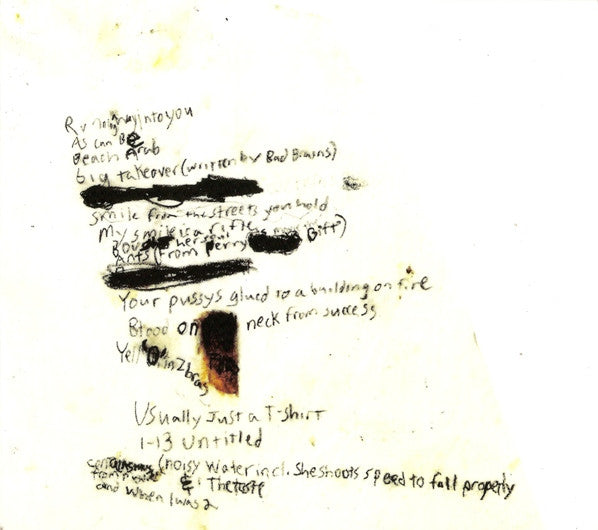 Running away into you
As can Be
Beach Arab
big takeover (written by Bad Brains)
skmile from the streets you hold
My smile is a rifle
her soul Gift)
Ants (from perry
Your pussys glued to a building on fire
Blood on neck from success
Yell in 2 bras
Usually Just a T-shirt
1-13 Untitled
(noisy water incl. She shoots speed to fall properly
from & The
and when I was 2